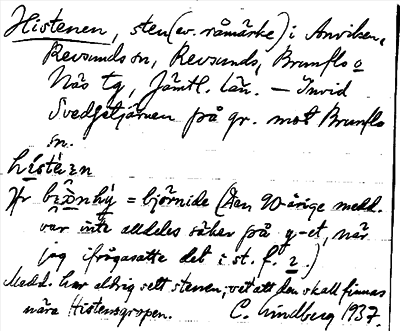 Histenen, sten (ev. råmärke) i Anviken,
Revsunds sn, Revsunds, Brunflo o
Näs tg, Jämtl. län. — Invid
Svedjetjärnen på gr. mot Brunflo
sn.
= björnide (Den 90-årige medd.
var inte alldeles säker på y-et, när
jag ifrågasatte det i. st. f. .)
Medd. har aldrig sett stenen, vet att den skall finnas
nära Histensgropen. C. Lindberg 1937.